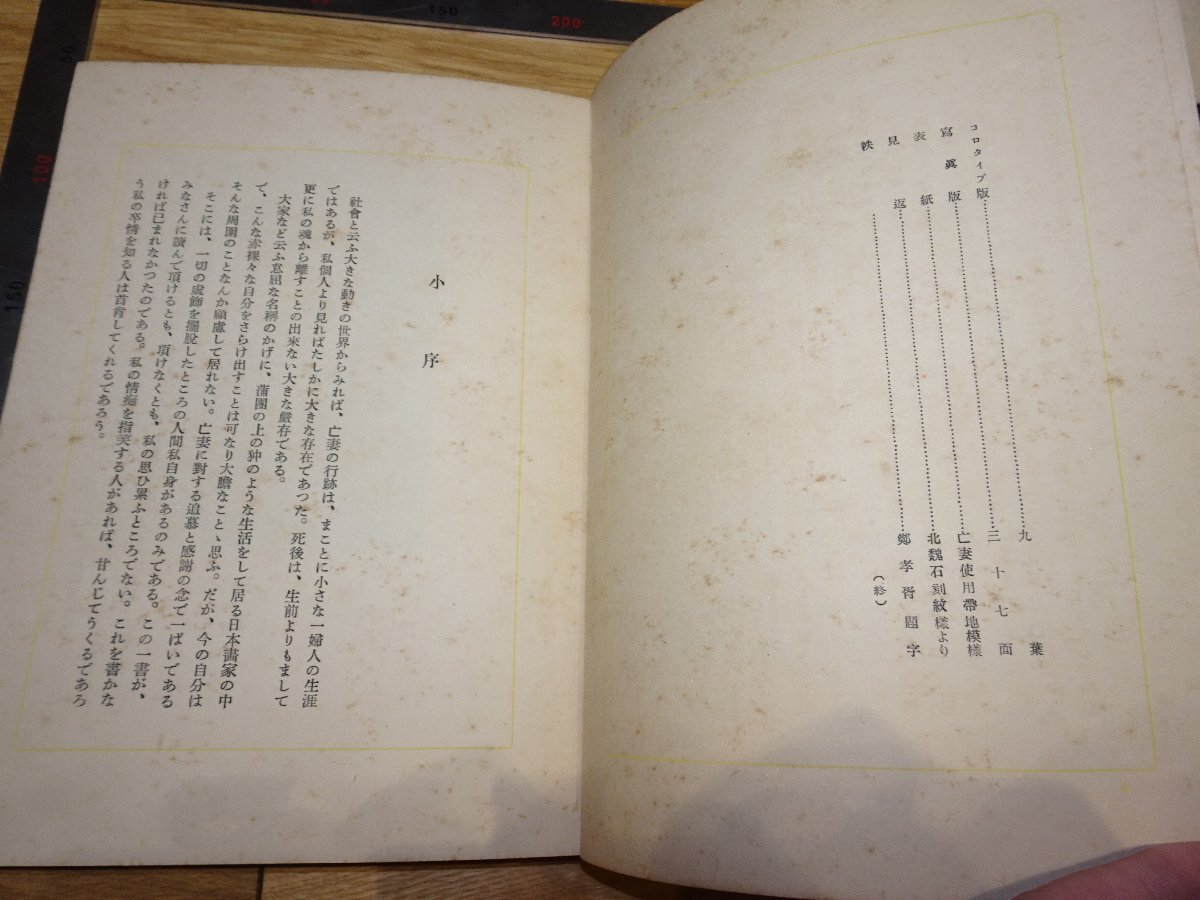 コロタイプ版……………………九葉
寫眞版……………………三十七面
表紙……………………亡妻使用帶地模樣
見返……………………北魏石刻紋樣より
帙……………………鄭孝胥題字
(終)
小序
社會と云ふ大きな動きの世界からみれば、亡妻の行跡は、まことに小さな一婦人の生涯
ではあるが、私個人より見ればたしかに大きな存在であつた。死後は、生前よりもまして
更に私の魂から離すことの出來ない大きな嚴存である。
大家など云ふ怠屈な名稱のかげに、蒲團の上の狆のような生活をして居る日本畫家の中
で、こんな赤裸々な自分をさらけ出すことは可なり大膽なことゝ思ふ。だが、今の自分は
そんな周圍のことなんか顧慮して居れない。亡妻に對する追慕と感謝の念で一ぱいである
そこには、一切の虛飾を擺脫したところの人間私自身があるのみである。この一書が、
みなさんに讀んで頂けるとも、頂けなくとも、私の思ひ累ふところでない。これを書かな
ければ已まれなかつたのである。私の情痴を指笑する人があれば、甘んじてうくるであろ
う私の卒情を知る人は首肯してくれるであろう。
150
200
50
100
150